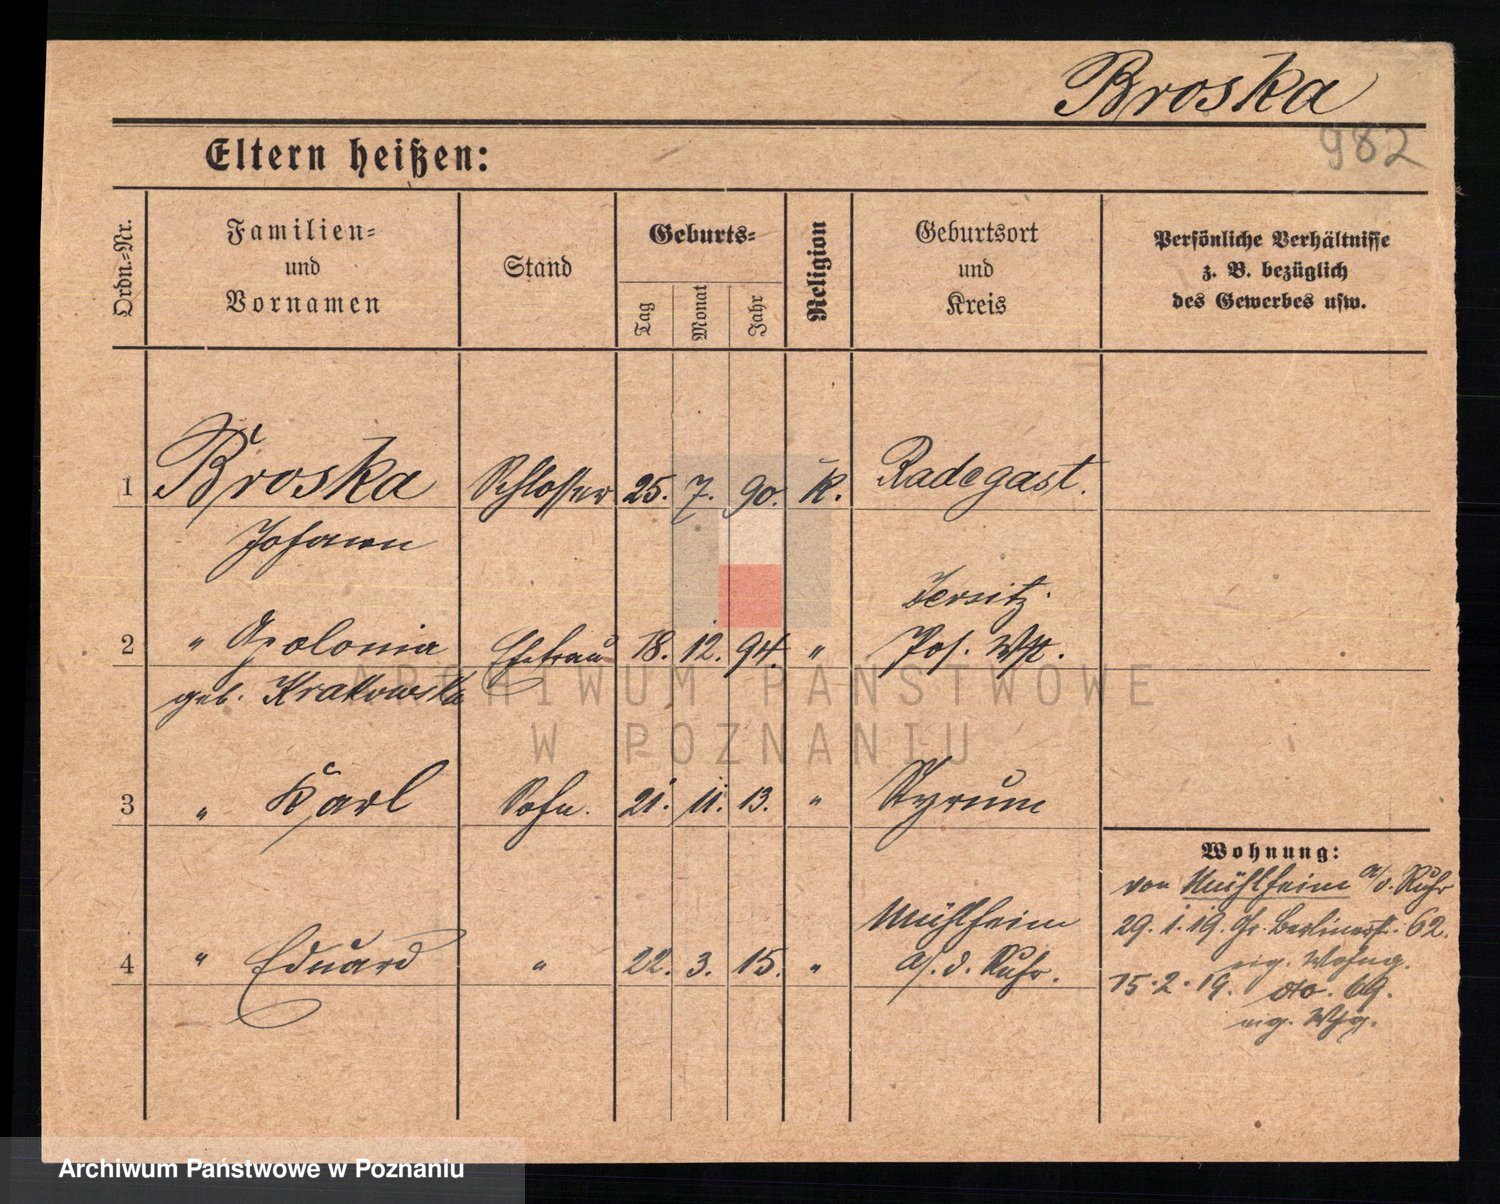 Broska
982
Eltern heißen:
Ordn.-Nr.
Familien-
und
Vornamen
Stand
Geburts-
Tag
Monat
Jahr
Religion
Geburtsort
und
Kreis
Persönliche Verhältnisse
z. B. bezüglich
des Gewerbes usw.
1 Broska Schlosser 25. 7. 90. K. Radegast.
Johann
Jersitz.
2 " Apolonia Ehefrau 18. 12. 94. " Pos. Wst.
geb. Krakowska
3 " Karl Sohn. 21. 11. 13. " Styrum
Mühlheim
4 " Eduard " 22. 3. 15. " a/. d. Ruhr.
Wohnung:
von Mühlheim a/d. Ruhr
29. 1. 19. Gr. Berlinerst. 62.
eig. Wohng.
15. 2. 19. dto. 69.
eig. Whg.
ARCHIWUM PAŃSTWOWE
W POZNANIU
Archiwum Państwowe w Poznaniu